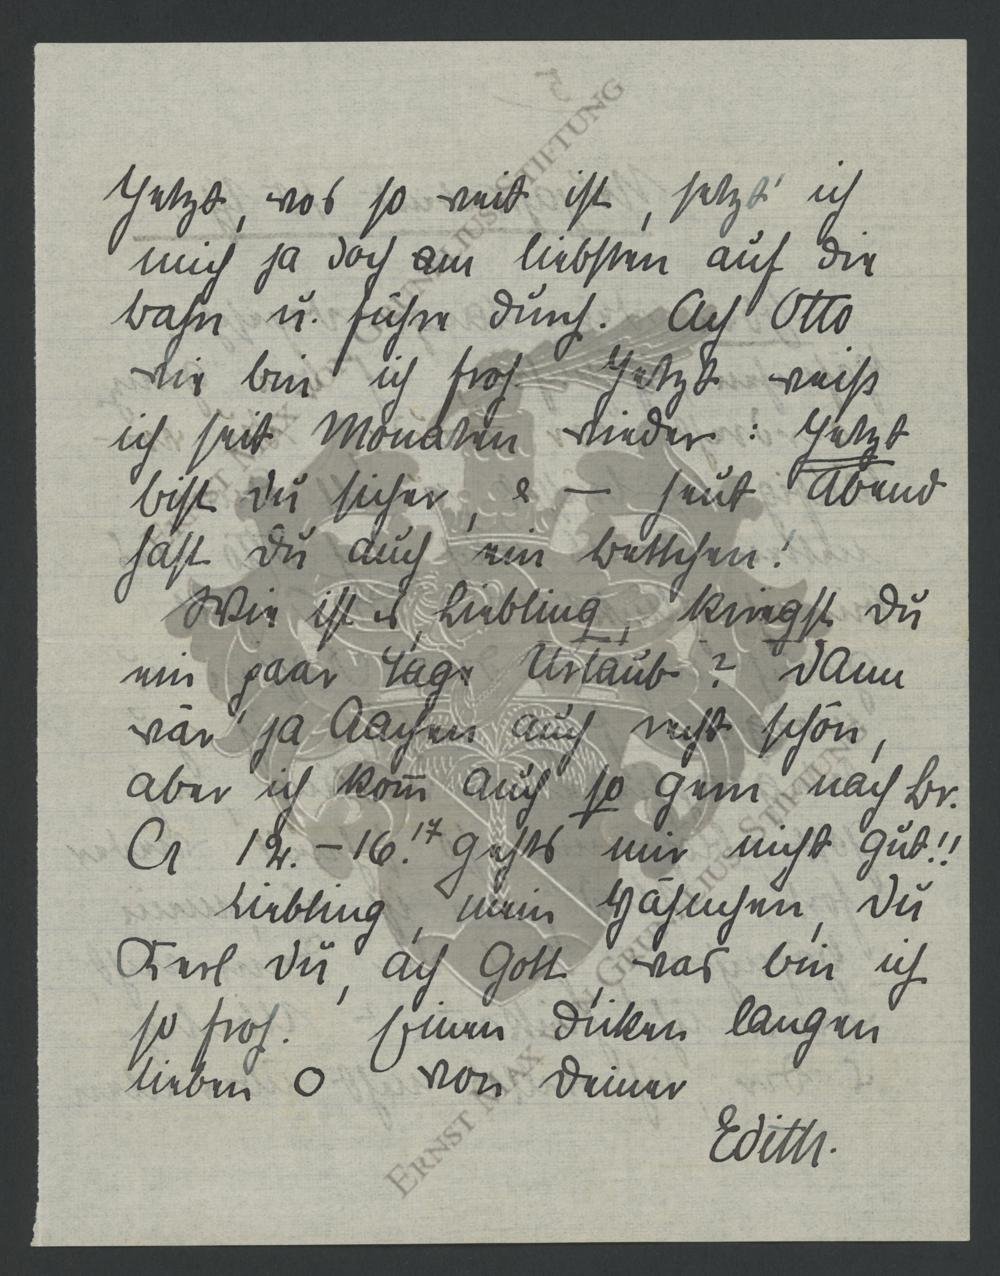 Jetzt, wos so weit ist, setzt' ich
mich ja doch am liebsten auf die
bahn u. führe durch. Ach Otto
wie bin ich froh. Jetzt weiß
ich seit Monaten wieder: Jetzt
bist du sicher, & — heut Abend
hast du auch ein bettchen!
Wie ist es, Liebling, kriegst du
ein paar Tage Urlaub? Dann
wär ja Aachen auch recht schön,
aber ich kom̅ auch so gern nach Br.
Ca 12.-16.17 gehts mir nicht gut!!
Liebling, mein Hähnchen, Du
Kerl du, ach Gott, was bin ich
so froh. Einen dicken langen
lieben O von deiner
Edith.
ERNST MAX VON GRUNELIUS-STIFTUNG